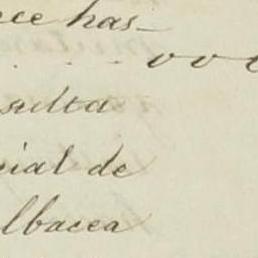 ece has-
sulta
cial de
lbacea